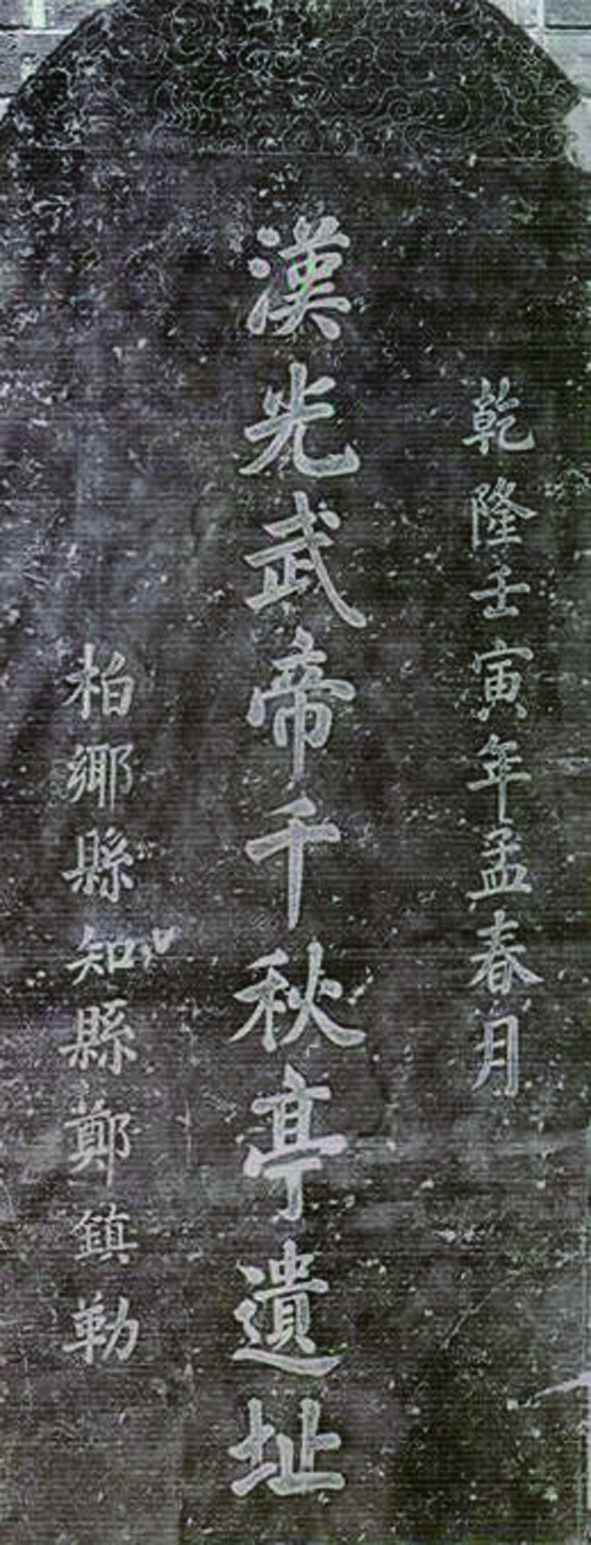 乾隆壬寅年孟春月
漢光武帝千秋亭遺址
柏鄉縣知縣鄭鎮勒